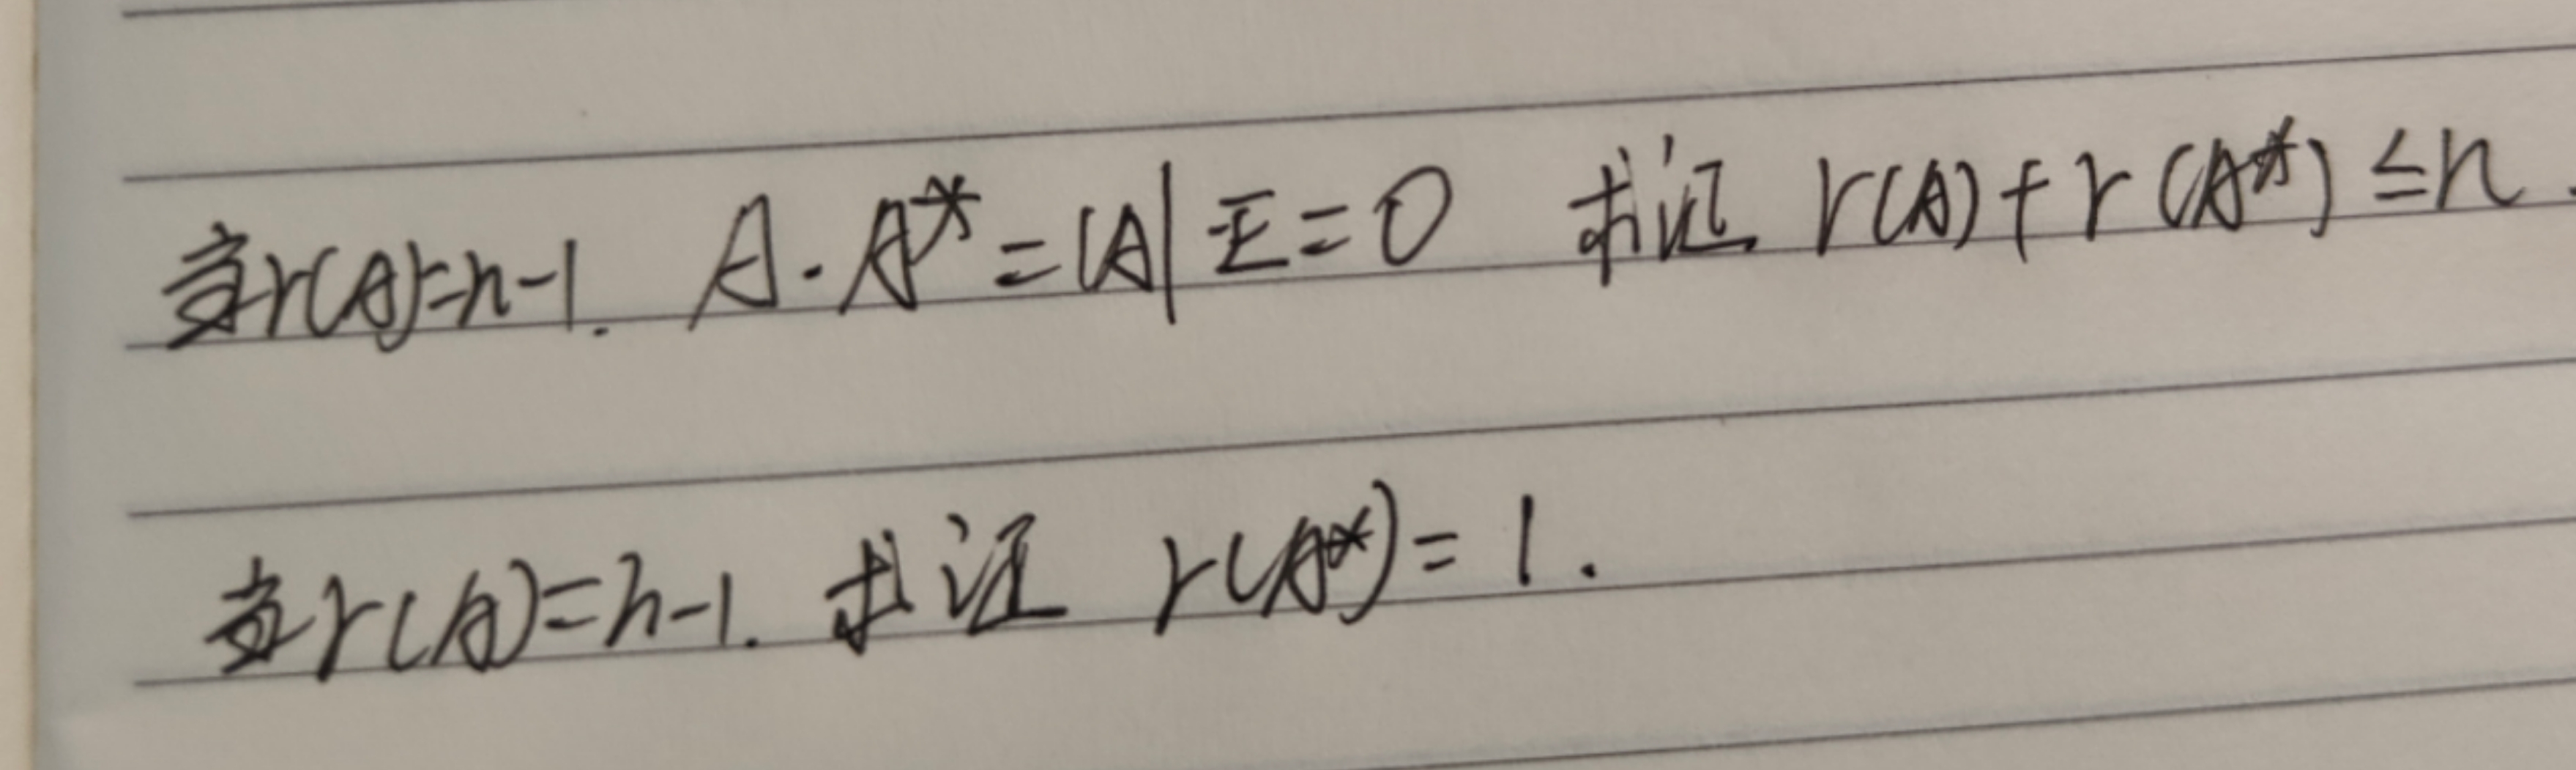 当r(A)=n-1. A·A*=|A|E=0 求证 r(A)+r(A*)≤n.
当r(A)=n-1. 求证 r(A*)=1.